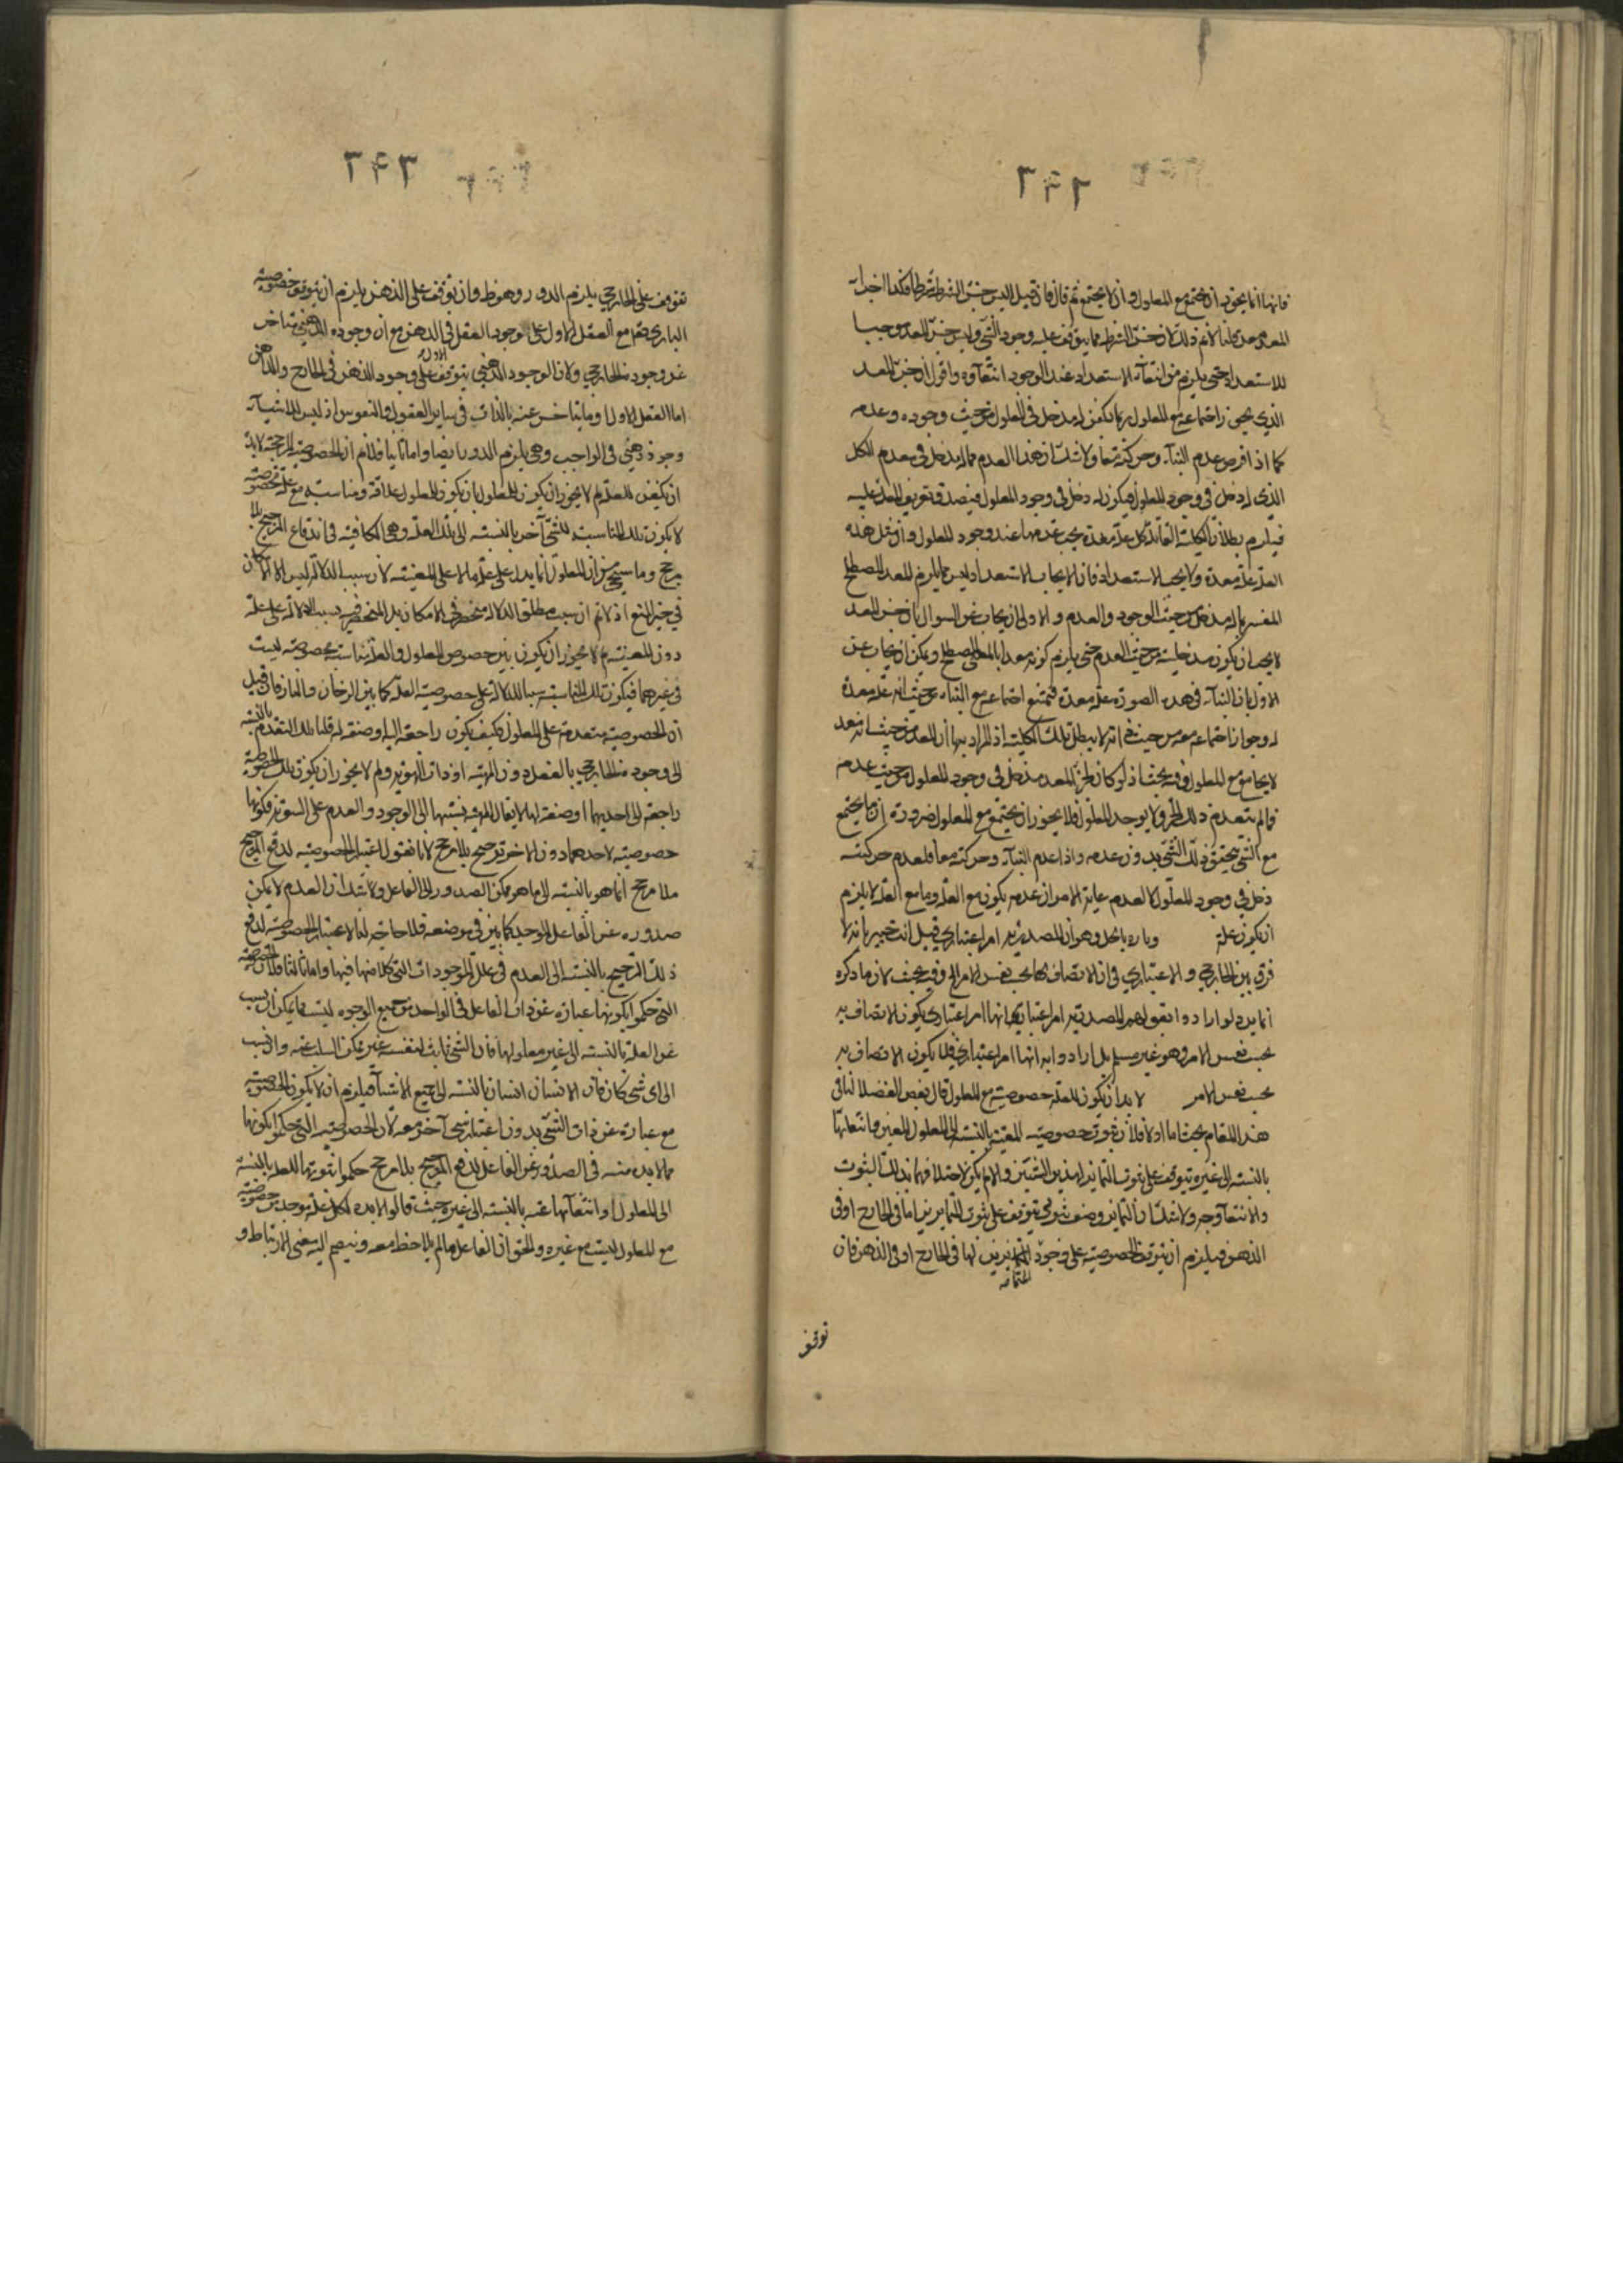 فانها انما يجوز ان يجتمع مع المعلول وان لا يجتمع ثم قال فان قيل اليس جزء الشرط شرطا فكذا اجزاء
المعد معد قلنا لا نم ذلك لان جزء الشرط مما يتوقف عليه وجود الشئ وليس جزء المعد موجبا
للاستعداد حتى يلزم من انتفاء الاستعداد عند الوجود انتفاؤه واقول ان جزء المعد
الذي يجوز اجتماعه مع المعلول ربما يكون له مدخل في المعلول من حيث وجوده وعدمه
كما اذا فرض عدم البناء وحركته معا ولا شك ان هذا العدم مما له مدخل في عدم الكل
الذي له دخل في وجود المعلول فيكون له دخل في وجود المعلول فيصدق تعريف المعد عليه
فيلزم بطلان الكلية القائلة كل علة معدة يجب عدمها عند وجود المعلول وان مثل هذه
العلة علة معدة ولا يجب الاستعداد فان الايجاب الاستعداد ليس مما يلزم للمعد المصطلح
المفسر بما له مدخل من حيث الوجود والعدم والاولى ان يجاب عن السوال بان جزء المعد
لا يجب ان يكون مدخليته من حيث العدم حتى يلزم كونه معدا بالمعنى المصطلح ويمكن ان يجاب عن
الاول بان البناء في هذه الصورة علة معدة فيمتنع اجتماعه مع البناء من حيث انه علة معدة
له وجواز اجتماعه معه من حيث انه لا يبطل تلك الكلية اذ المراد بها ان المعد من حيث انه معد
لا يجامع مع المعلول وفيه بحث اذ لو كان لجزء المعد مدخل في وجود المعلول من حيث عدمه
فما لم ينعدم ذلك الجزء لا يوجد المعلول فلا يجوز ان يجتمع مع المعلول ضرورة ان ما يجتمع
مع الشئ يتحقق ذلك الشئ بدون عدمه واذا عدم البناء وحركته معا فلعدم حركته
دخل في وجود المعلول لا لعدمه غاية الامر ان عدمه يكون مع العلة وما مع العلة لا يلزم
ان يكون علة وباره بالحل وهو ان المصدرية امر اعتباري قيل انت خبير بانه لا
فرق بين الخارجي والاعتباري في ان الاتصاف بها بحسب نفس الامر الخ وفيه بحث لان ما ذكره
انما يرد لو ارادوا بقولهم المصدرية امر اعتباري انها امر اعتباري يكون الاتصاف به
بحسب نفس الامر وهو غير مسلم بل ارادوا به انها امر اعتباري فلا يكون الاتصاف به
بحسب نفس الامر لا بد ان يكون للعلة خصوصية مع المعلول قال بعض الفضلا لنا في
هذا المقام بحث اما اولا فلان ثبوت خصوصية المعينة بالنسبة الى المعلول المعين وانتفائها
بالنسبة الى غيره يتوقف على ثبوت التمايز لهذين الشيئين والا لم يكن لاختلافهما بذلك الثبوت
والانتفاء وجه ولا شك ان التمايز وصف ثبوتي يتوقف على ثبوت المتمايزين اما في الخارج او في
الذهن فيلزم ان يتوقف الخصوصية على وجود المتمايزين بها في الخارج او في الذهن فان
توقف
توقف على الخارجي يلزم الدور وهو بط وان توقف على الذهن يلزم ان يتوقف خصوصية
الباري تعا مع العقل الاول على الوجود العقل في الذهن مع ان وجوده الذهني متاخر
عن وجوده الخارجي ولان الوجود الذهني يتوقف على وجود الذهن في الخارج والذهن
اما العقل الاول او ما يتاخر عنه بالذات في ساير العقول والنفوس اذ ليس للاشياء
وجود ذهني في الواجب وهي يلزم الدور ايضا واما ثانيا فلانم ان الخصوصية المرجحة لا بد
ان يكون للعلة لم لا يجوز ان يكون للمعلول بان يكون للمعلول علاقة ومناسبة مع علة مخصوصة
لا يكون تلك المناسبة لشئ آخر بالنسبة الى تلك العلة وهي الكافية في اندفاع الترجيح بلا
مرجح وما سيجئ من ان المعلول انما يدل على علة ما لا على المعينة لان سبب الدلالة ليس الا الامكان
في حيز المنع اذ لا نم ان سبب مطلق الدلالة منحصر في الامكان بل المنحصر فيه سبب الدلالة على علة
دون المعينة لم لا يجوز ان يكون بين خصوص المعلول والعلة مناسبة مخصوصة ليست
في غيرهما فيكون تلك المناسبة سببا للدلالة على خصوصية العلة كما بين الدخان والنار فان قيل
ان الخصوصية متقدمة على المعلول فكيف يكون راجعة اليه او صفة له قلنا تلك التقدم بالنسبة
الى وجوده الخارجي بالفعل دون المهية او ذات الهوية ولم لا يجوز ان يكون تلك الخصوصية
راجعة الى احديهما او صفة لها لا يقال المهية نسبتها الى الوجود والعدم على السوية فكونها
خصوصية لاحدهما دون الاخر ترجيح بلا مرجح لانا نقول اعتبار الخصوصية لدفع الترجيح
بلا مرجح انما هو بالنسبة الى ما هو ممكن الصدور الى الفاعل ولا شك ان العدم لا يمكن
صدوره عن الفاعل الموجد كما بين في موضعه فلا حاجة لنا الا اعتبار الخصوصية لدفع
ذلك الترجيح بالنسبة الى العدم في علل الموجودات التي كلامنا فيها واما ثالثا فلان الخصوصية
التي حكموا بكونها عبارة عن ذات الفاعل في الواحد من جميع الوجوه ليست مما يمكن ان يسلب
عن العلة بالنسبة الى غير معلولها فان الشئ ثابت لنفسه غير ممكن السلب عنه وان نسب
الى اي شئ كان فان الانسان انسان بالنسبة الى جميع الاشياء فيلزم ان لا يكون الخصوصية
مع عبارة عن ذات الشئ بدون اعتبار شئ آخر معه لان الخصوصية التي حكموا بكونها
مما لا بد منه في الصدور عن الفاعل لدفع الترجيح بلا مرجح حكموا بثبوتها للعلة بالنسبة
الى المعلول او انتفائها عنه بالنسبة الى غيره حيث قالوا لا بد لكل علة موجدة من خصوصية
مع المعلول ليست مع غيره والحق ان الفاعل ما لم يلاحظ معه وينضم اليه معنى الارتباط و